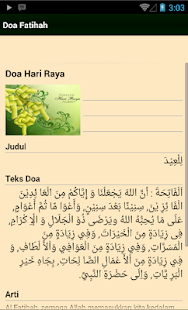 3:03
Doa Fatihah
Doa Hari Raya
Hari Raya
Judul
لِلْعِيْدِ
Teks Doa
الْفَاتِحَةَ : أَنَّ اللهَ يَجْعَلُنَا وَ إِيَّاكُمْ مِنَ الْعَا ئِدِيْنَ
الْفَائِزِ يْنَ, سِنِيْنًا بَعْدَ سِنِيْنٍ, وَأَعْوَا مًا ثُمَّ أَعْوَامًا,
عَلَى مَا يُحِبُّهُ اللهُ وَيَرْضَى ذُو الْجَلَالِ وَ الْإِكْرَامِ,
وَفِي زِيَادَةٍ مِنَ الْخَيْرَاتِ, وَفِي زِيَادَةٍ مِنَ
الْمَسَرَّاتِ, وَفِي زِيَادَةٍ مِنَ الْأَلْطَافِ, وَفِي
زِيَادَةٍ مِنَ الْأَ عْمَالِ الصَّا لِحَاتِ, بِجَاهِ خَيْرِ
الْبَرِ يَّاتِ, وَ إِلَى حَضْرَةِ النَّبِيِّ.
Arti
Al Fatihah, semoga Allah memasukkan kita kedalam